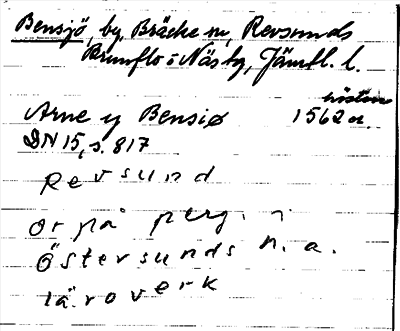 Bensjö, by, Bräcke sn, Revsunds
Brunflo o Näs tg, Jämtl. l.
hösten
Arne y Bensiø 1562
DN 15, s. 817
Revsund
or på perg. i
Östersunds h. a.
läroverk